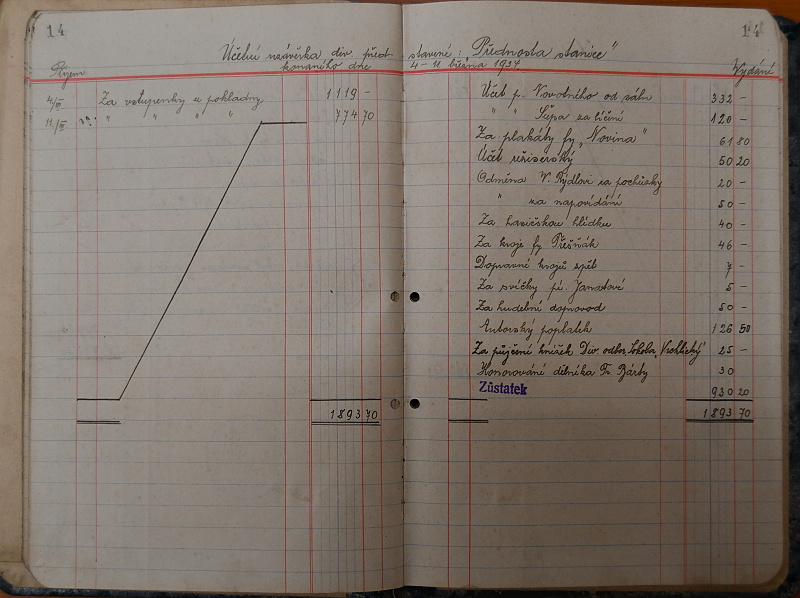 14
14
Účetní uzávěrka div. představení: "Přednosta stanice"
konaného dne 4 - 11 března 1937.
Příjem
Vydání
4/III Za vstupenky u pokladny 1119 -
11./III " " " " 774 70
1893 70
Účet p. Novotného od sálu 332 -
" " Šupa za líčení 120 -
Za plakáty fy „Novina" 61 80
Účet režiserský 50 20
Odměna V. Rýdlovi za pochůzky 20 -
" za napovídání 50 -
Za hasičskou hlídku 40 -
Za kroje fy Přešňák 46 -
Dopravné krojů zpět 7 -
Za svíčky pí. Janatové 5 -
Za hudební doprovod 50 -
Autorský poplatek 126 50
Za půjčení knížek Div. odbor Sokola „Vrchlický" 25 -
Honorování dělníka Fr. Bárty 30
Zůstatek 930 20
1893 70